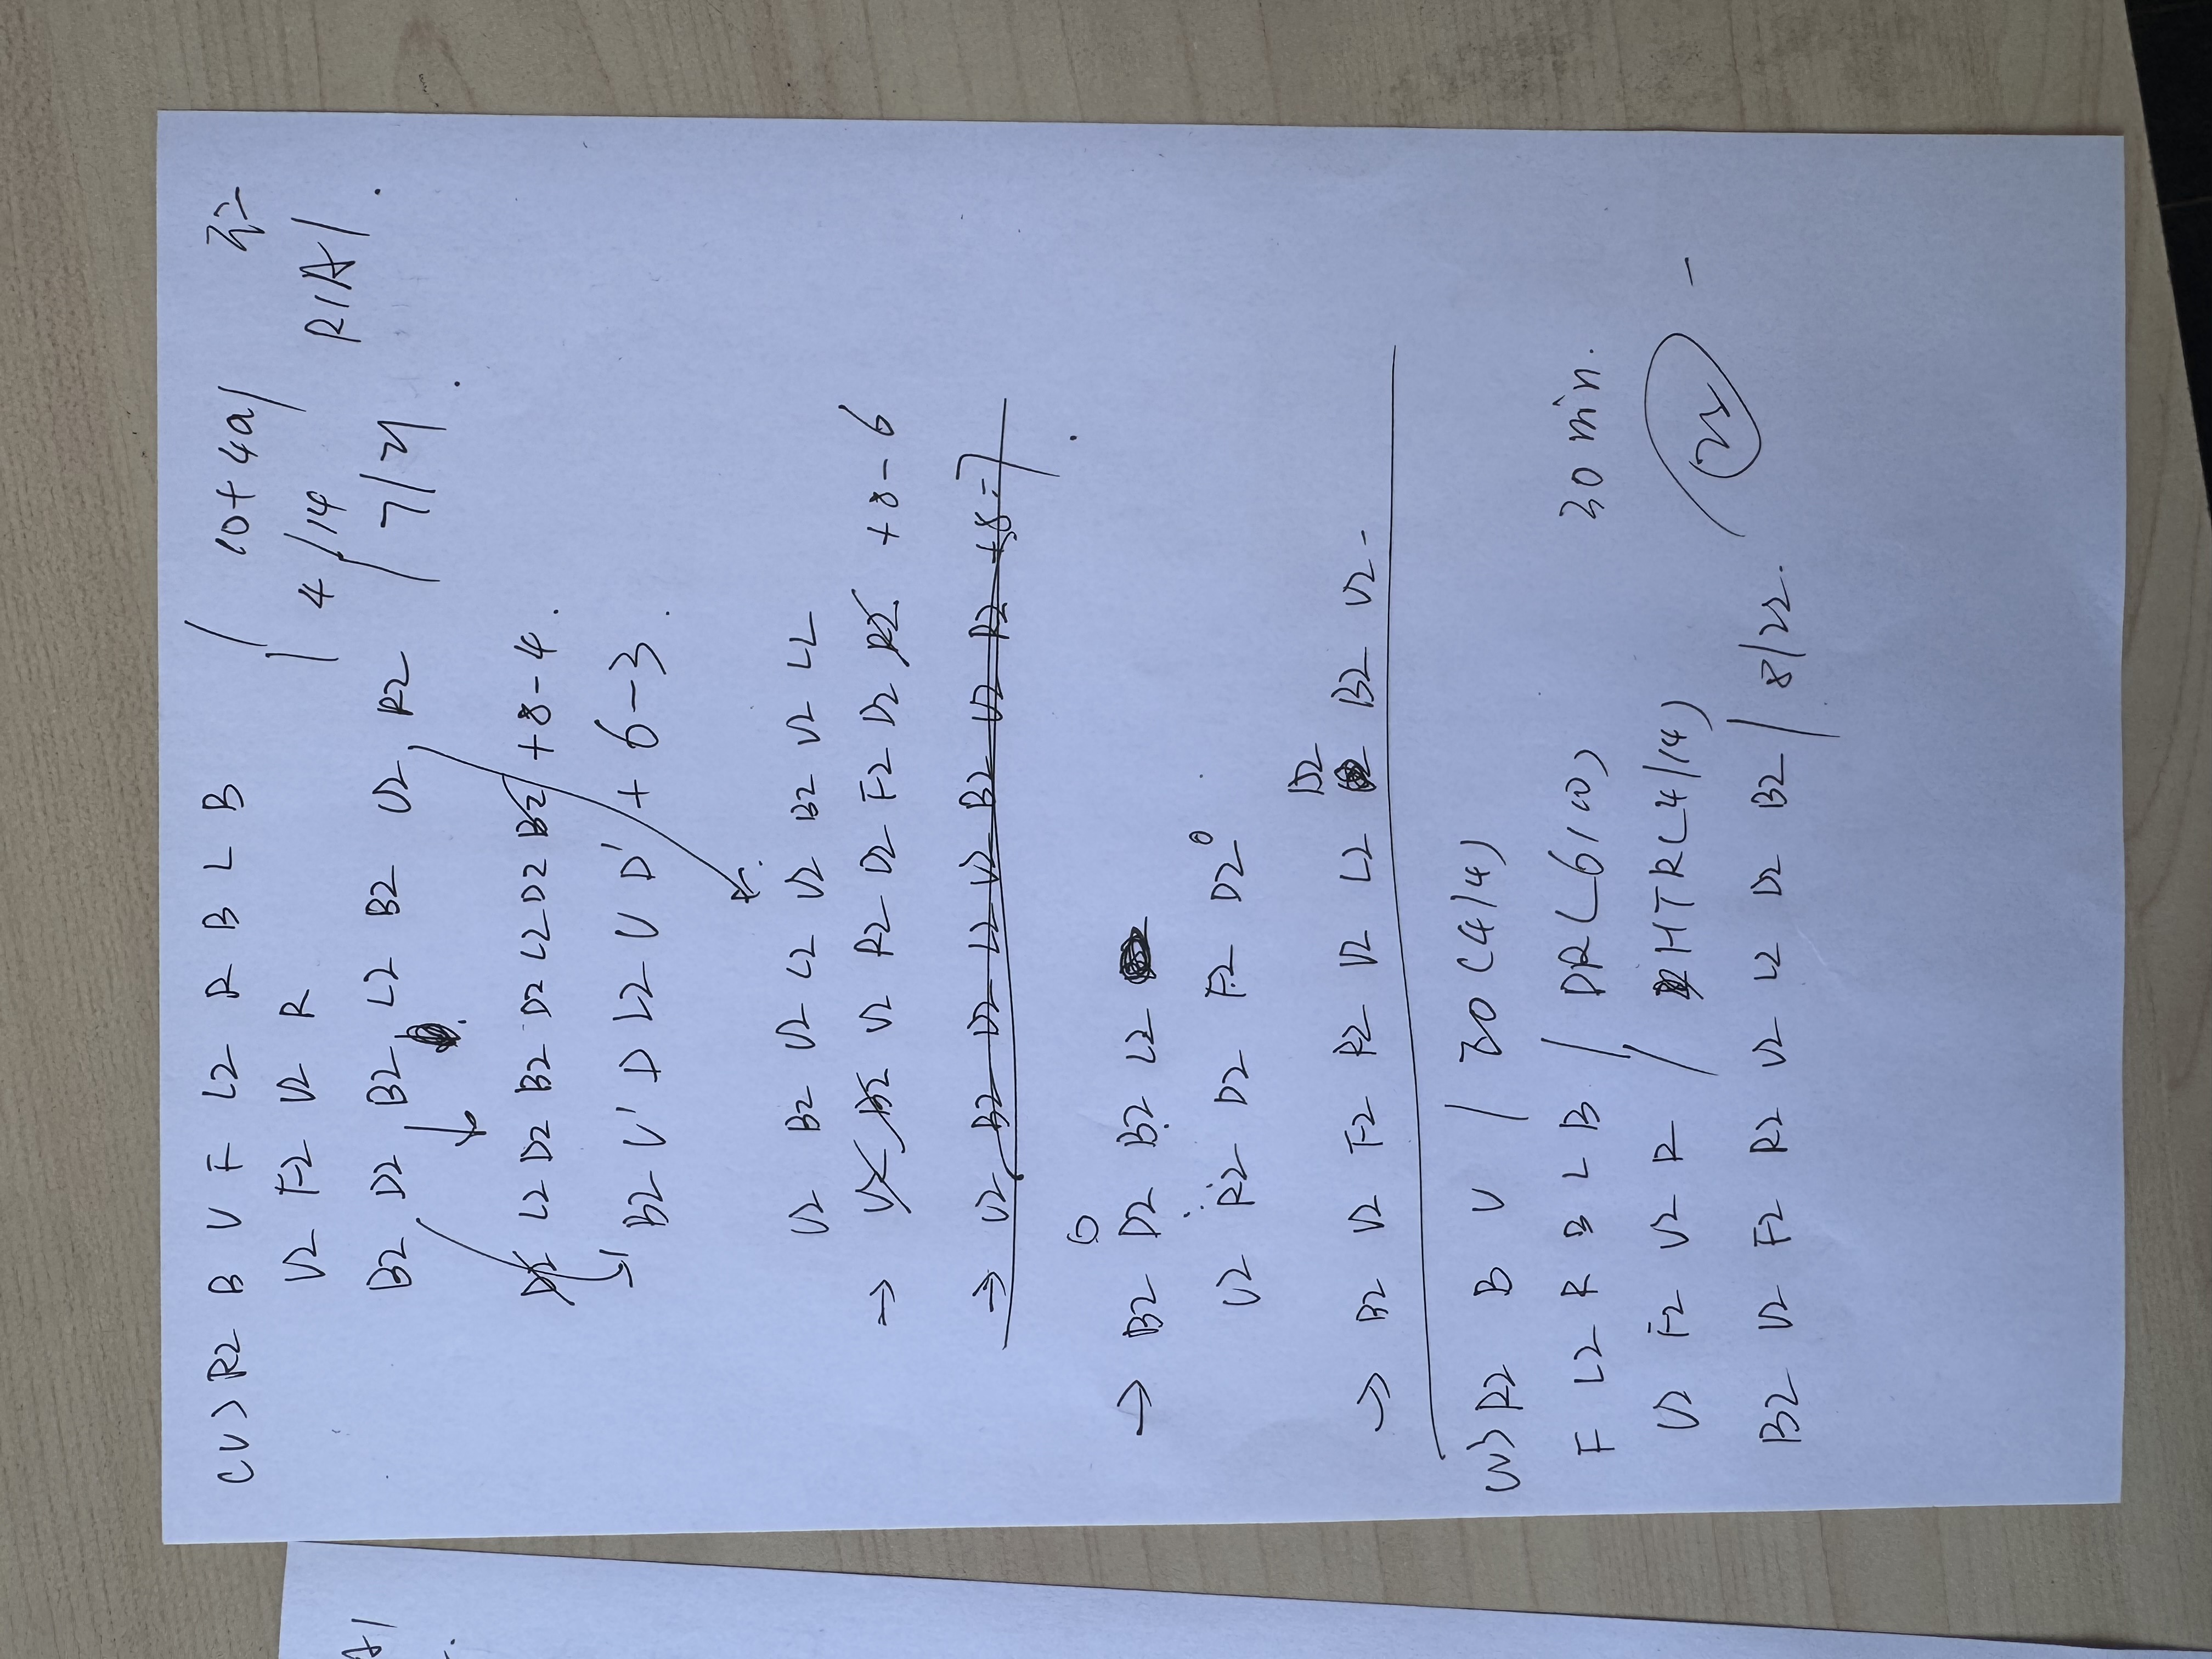 (U) R2 B U F L2 R B L B / 10+4a/
U2 F2 U2 R / 4/14 R1A1
B2 D2 B2 L2 B2 U2 R2 / 7/21
D2 L2 D2 B2 D2 L2 D2 B2 +8-4.
B2 U' D L2 U D' +6-3.
U2 B2 U2 L2 U2 B2 U2 L2
→ U2 B2 U2 R2 D2 F2 D2 R2 +8-6
→ U2 B2 U2 L2 U2 B2 U2 R2 +8-7
→ B2 D2 B2 L2
U2 R2 D2 F2 D2
D2
→ B2 U2 F2 R2 U2 L2 B2 U2 -
(U) R2 B U / EO (4/4)
F L2 R B L B / DR (6/10) 30 min.
U2 F2 U2 R / HTR (4/14)
B2 U2 F2 R2 U2 L2 D2 B2 / 8/22. / 22
A1